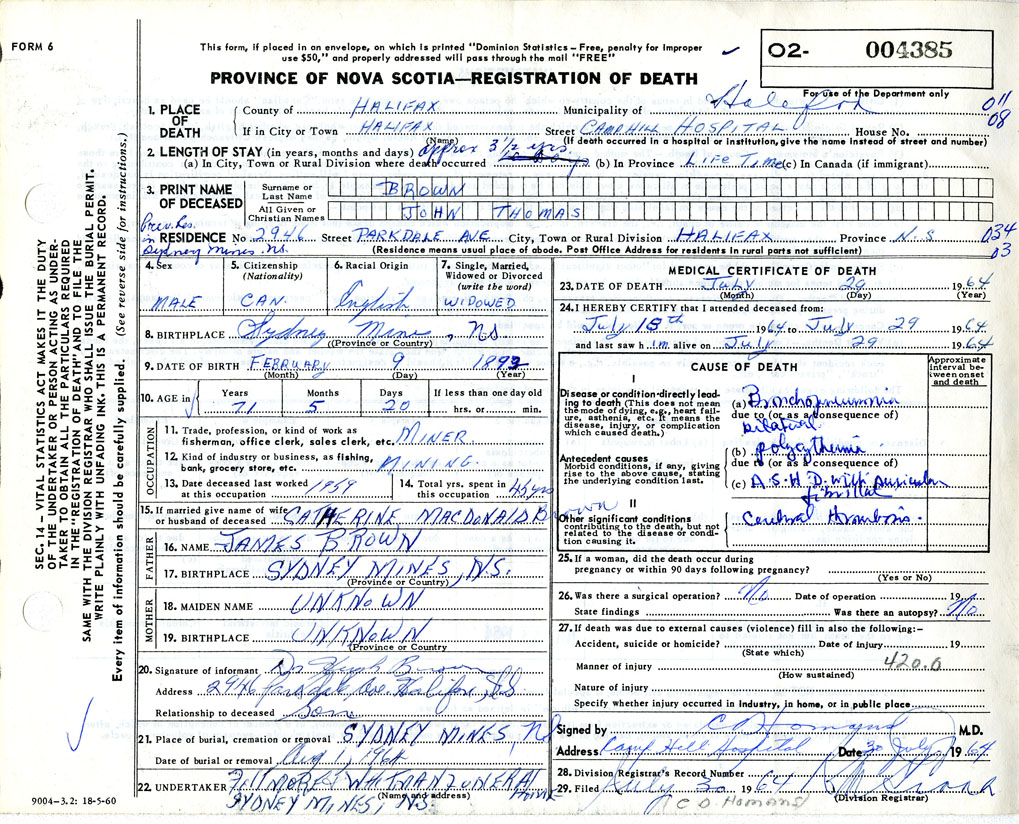 FORM 6
This form, if placed in an envelope, on which is printed "Dominion Statistics – Free, penalty for improper
use $50," and properly addressed will pass through the mail "FREE"
O2- 004385
For use of the Department only
PROVINCE OF NOVA SCOTIA—REGISTRATION OF DEATH
011
08
1. PLACE OF DEATH
County of HALIFAX Municipality of Halifax
If in City or Town HALIFAX Street CAMP HILL HOSPITAL House No.
(Name) (If death occurred in a hospital or institution, give the name instead of street and number)
2. LENGTH OF STAY (in years, months and days) approx 3 1/2 yrs.
(a) In City, Town or Rural Division where death occurred (b) In Province LIFE TIME (c) In Canada (if immigrant)
3. PRINT NAME OF DECEASED
Surname or Last Name BROWN
All Given or Christian Names JOHN THOMAS
Prev. Res. in Sydney Mines, N.S.
RESIDENCE No 2946 Street PARKDALE AVE City, Town or Rural Division HALIFAX Province N.S
034
03
(Residence means usual place of abode. Post Office Address for residents in rural parts not sufficient)
4. Sex MALE
5. Citizenship (Nationality) CAN.
6. Racial Origin English
7. Single, Married, Widowed or Divorced (write the word) WIDOWED
8. BIRTHPLACE Sydney Mines, NS.
(Province or Country)
9. DATE OF BIRTH FEBRUARY 9 1893
(Month) (Day) (Year)
10. AGE in Years 71 Months 5 Days 20 If less than one day old hrs. or min.
OCCUPATION
11. Trade, profession, or kind of work as fisherman, office clerk, sales clerk, etc. MINER
12. Kind of industry or business, as fishing, bank, grocery store, etc. MINING.
13. Date deceased last worked at this occupation 1959
14. Total yrs. spent in this occupation 45 yrs
15. If married give name of wife or husband of deceased CATHERINE MACDONALD Brown
FATHER
16. NAME JAMES BROWN
17. BIRTHPLACE SYDNEY MINES, NS.
(Province or Country)
MOTHER
18. MAIDEN NAME UNKNOWN
19. BIRTHPLACE UNKNOWN
(Province or Country
20. Signature of informant Dr Hugh Brown
Address 2946 Parkdale Ave. Halifax, N.S.
Relationship to deceased Son
21. Place of burial, cremation or removal SYDNEY MINES, NS
Date of burial or removal Aug 1, 1964
22. UNDERTAKER FILLMORE & WHITMAN FUNERAL Home
(Name and address)
SYDNEY MINES, NS.
9004-3.2: 18-5-60
MEDICAL CERTIFICATE OF DEATH
23. DATE OF DEATH July 29 1964
(Month) (Day) (Year)
24. I HEREBY CERTIFY that I attended deceased from:
July 15th 1964 to July 29 1964
and last saw h im alive on July 29 1964
CAUSE OF DEATH
Approximate interval between onset and death
I
Disease or condition directly leading to death (This does not mean the mode of dying, e.g., heart failure, asthenia, etc. It means the disease, injury, or complication which caused death.)
(a) Bronchopneumonia
due to (or as a consequence of)
bilateral
Antecedent causes
Morbid conditions, if any, giving rise to the above cause, stating the underlying condition last.
(b) polycythemia
due to (or as a consequence of)
(c) A.S.H.D. with auricular
fibrillat
II
Other significant conditions
contributing to the death, but not related to the disease or condition causing it.
Cerebral thrombosis.
25. If a woman, did the death occur during pregnancy or within 90 days following pregnancy?
(Yes or No)
26. Was there a surgical operation? No Date of operation 19
State findings Was there an autopsy? No
27. If death was due to external causes (violence) fill in also the following:–
Accident, suicide or homicide? Date of injury 19
(State which)
Manner of injury 420.0
(How sustained)
Nature of injury
Specify whether injury occurred in Industry, in home, or in public place
Signed by C D Homans M.D.
Address Camp Hill Hospital Date 30 July 1964
28. Division Registrar's Record Number
29. Filed July 30 1964
(Division Registrar)
C D Homans
SEC. 14 – VITAL STATISTICS ACT MAKES IT THE DUTY
OF THE UNDERTAKER OR PERSON ACTING AS UNDER-
TAKER TO OBTAIN ALL THE PARTICULARS REQUIRED
IN THE "REGISTRATION OF DEATH" AND TO FILE THE
SAME WITH THE DIVISION REGISTRAR WHO SHALL ISSUE THE BURIAL PERMIT.
WRITE PLAINLY WITH UNFADING INK. THIS IS A PERMANENT RECORD.
Every item of information should be carefully supplied. (See reverse side for instructions.)